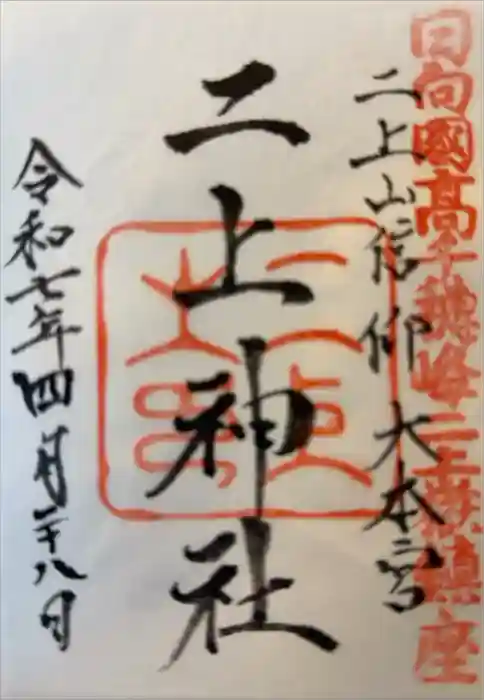 日向國高千穂峰二上嶽鎮座
二上山信仰大本宮
二上神社
令和七年四月二十八日